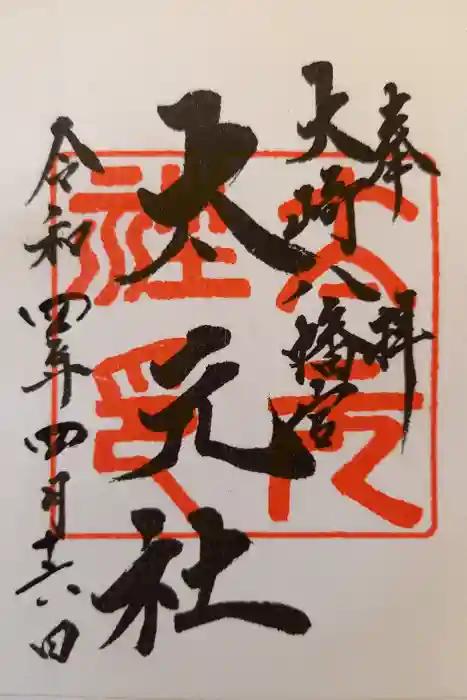 奉拝
大崎八幡宮
大元社
令和四年四月十六日
大元社印